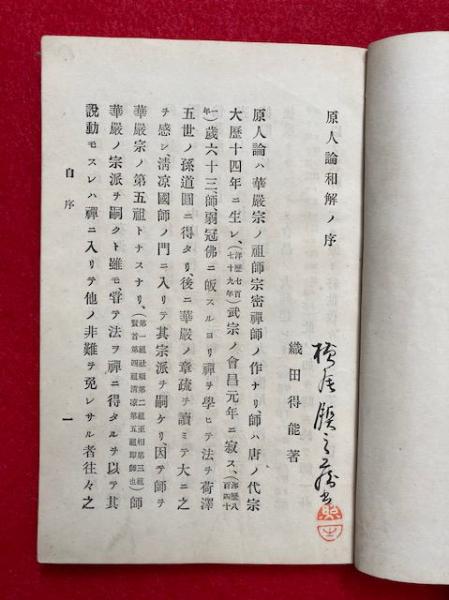 原人論和解ノ序
織田得能著
原人論ハ華嚴宗ノ祖師宗密禪師ノ作ナリ、師ハ唐ノ代宗
大歷十四年ニ生レ、(洋歷七百七十九年)武宗ノ會昌元年ニ寂ス、(洋歷八百四十
一年)歲六十三、師、弱冠佛ニ皈スルヨリ禪ヲ學ヒテ法ヲ荷澤
五世ノ孫道圓ニ得タリ、後ニ華嚴ノ章疏ヲ讀ミテ大ニ之
ヲ感シ淸凉國師ノ門ニ入リテ其宗派ヲ嗣ケリ、因テ師ヲ
華嚴宗ノ第五祖トナスナリ、(第一祖杜順第二祖至相第三祖賢首第四祖淸凉第五祖即師也)師
華嚴ノ宗派ヲ嗣クト雖モ、嘗テ法ヲ禪ニ得タルヲ以テ其
說動モスレハ禪ニ入リテ他ノ非難ヲ免レサル者往々之
自序
一